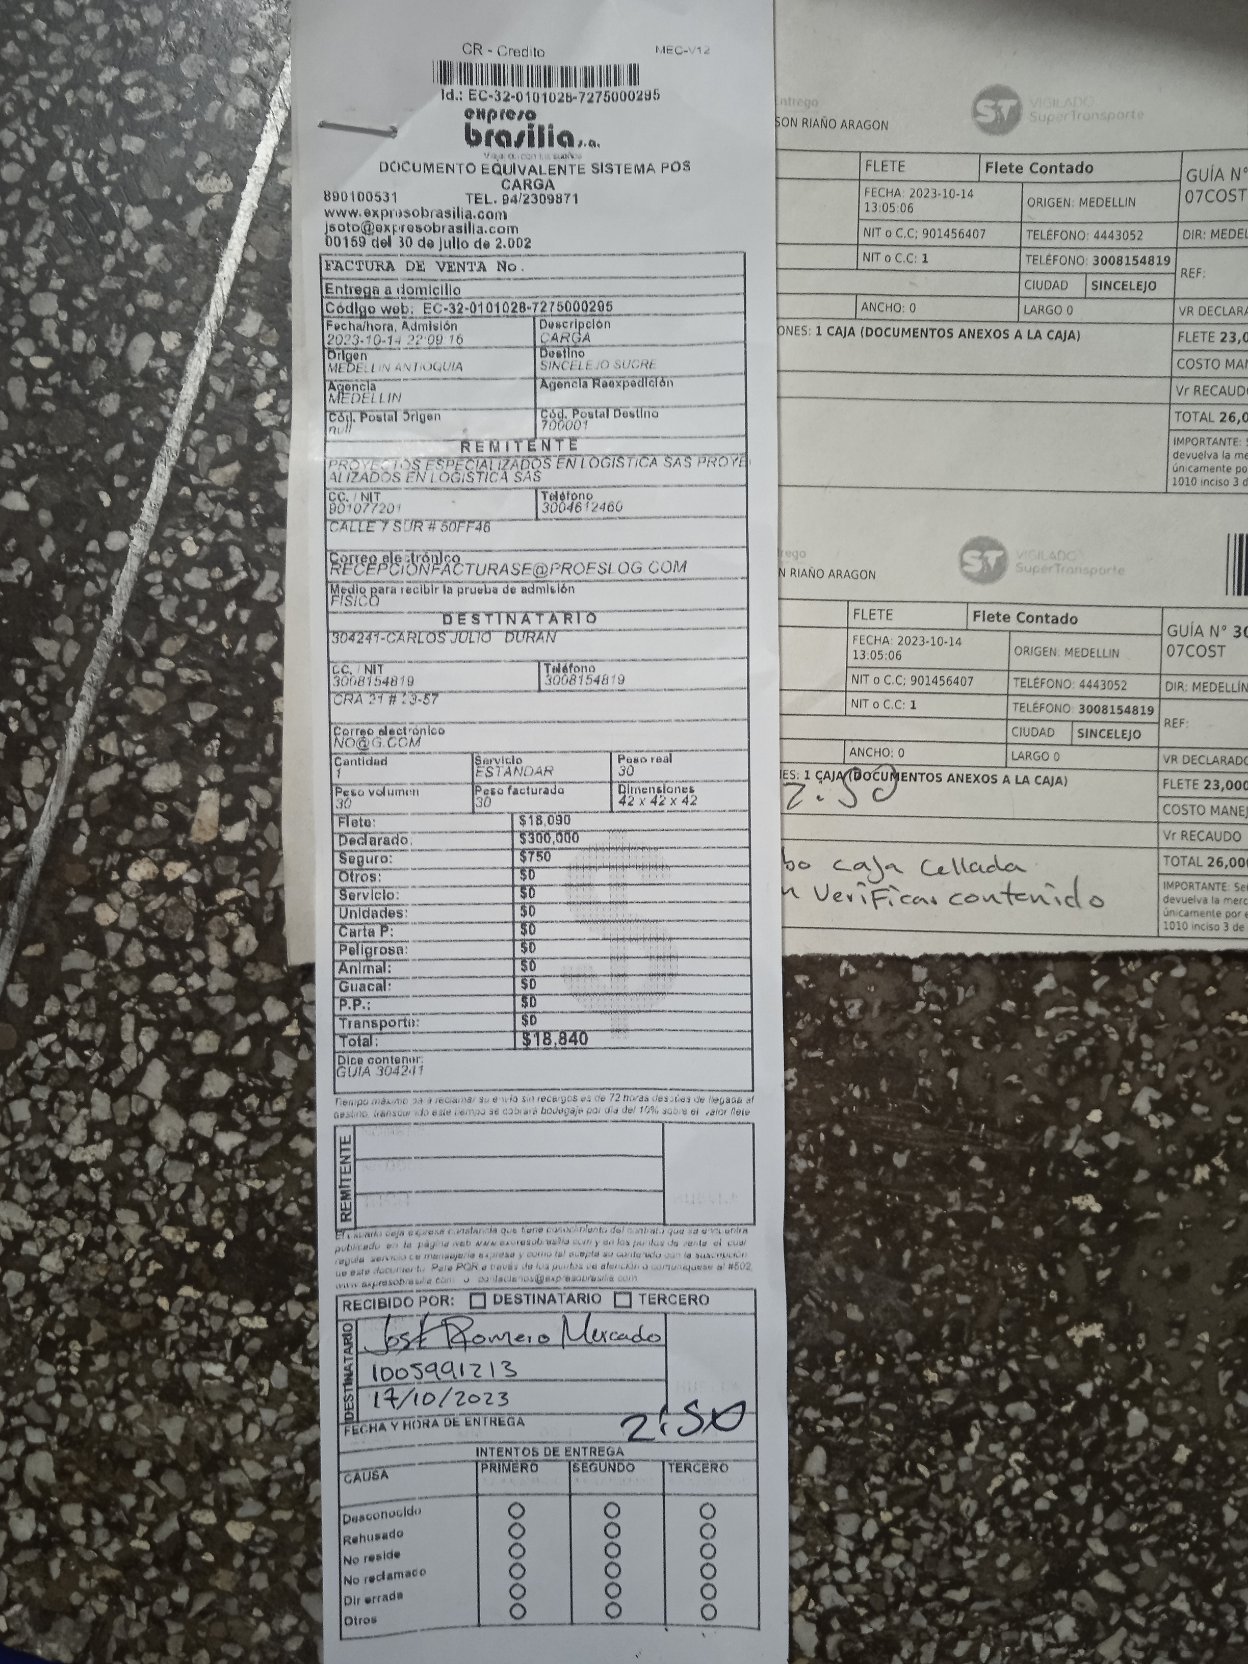 CR - Credito
MEC-V12
Id.: EC-32-0101028-7275000295
expreso
brasilia s.a.
DOCUMENTO EQUIVALENTE SISTEMA POS
CARGA
890100531 TEL. 94/2309871
www.expresobrasilia.com
jsoto@expresobrasilia.com
00159 del 30 de julio de 2.002
FACTURA DE VENTA No.
Entrega a domicilio
Código web: EC-32-0101028-7275000295
Fecha/hora, Admisión Descripción
2023-10-14 22:09:16 CARGA
Origen Destino
MEDELLIN ANTIOQUIA SINCELEJO SUCRE
Agencia Agencia Reexpedición
MEDELLIN
Cód. Postal Origen Cód. Postal Destino
null 700001
REMITENTE
PROYECTOS ESPECIALIZADOS EN LOGISTICA SAS PROYE
ALIZADOS EN LOGISTICA SAS
CC. / NIT Teléfono
901077201 3004612460
CALLE 7 SUR # 50FF46
Correo electrónico
RECEPCIONFACTURASE@PROESLOG.COM
Medio para recibir la prueba de admisión
FISICO
DESTINATARIO
304241-CARLOS JULIO DURAN
CC. / NIT Teléfono
3008154819 3008154819
CRA 21 # 23-57
Correo electrónico
NO@G.COM
Cantidad Servicio Peso real
1 ESTANDAR 30
Peso volumen Peso facturado Dimensiones
30 30 42 x 42 x 42
Flete: $18,090
Declarado: $300,000
Seguro: $750
Otros: $0
Servicio: $0
Unidades: $0
Carta P: $0
Peligrosa: $0
Animal: $0
Guacal: $0
P.P.: $0
Transporte: $0
Total: $18,840
Dice contener:
GUIA 304241
Tiempo máximo para reclamar su envío sin recargos es de 72 horas después de llegada al
destino, transcurrido este tiempo se cobrará bodegaje por día del 10% sobre el valor flete
REMITENTE
El usuario deja expresa constancia que tiene conocimiento del contrato que se encuentra
publicado en la página web www.expresobrasilia.com y en los puntos de venta el cual
regula servicio de mensajería expresa y como tal acepta su contenido con la suscripción
de este documento. Para PQR a través de los puntos de atención o comuníquese al #502,
RECIBIDO POR: DESTINATARIO TERCERO
DESTINATARIO
José Romero Mercado
1005991213
17/10/2023
FECHA Y HORA DE ENTREGA 2:50
INTENTOS DE ENTREGA
CAUSA PRIMERO SEGUNDO TERCERO
Desconocido
Rehusado
No reside
No reclamado
Dir errada
Otros
ntrega
SON RIAÑO ARAGON
ST VIGILADO
SuperTransporte
FLETE Flete Contado GUÍA N°
FECHA: 2023-10-14
13:05:06 ORIGEN: MEDELLIN 07COST
NIT o C.C; 901456407 TELÉFONO: 4443052 DIR: MEDEL
NIT o C.C: 1 TELÉFONO: 3008154819 REF:
CIUDAD SINCELEJO
ANCHO: 0 LARGO 0 VR DECLARA
ONES: 1 CAJA (DOCUMENTOS ANEXOS A LA CAJA) FLETE 23,0
COSTO MAN
Vr RECAUDO
TOTAL 26,0
IMPORTANTE: S
devuelva la me
únicamente por
1010 inciso 3 d
rego
N RIAÑO ARAGON
ST VIGILADO
SuperTransporte
FLETE Flete Contado GUÍA N° 30
FECHA: 2023-10-14
13:05:06 ORIGEN: MEDELLIN 07COST
NIT o C.C; 901456407 TELÉFONO: 4443052 DIR: MEDELLÍN
NIT o C.C: 1 TELÉFONO: 3008154819 REF:
CIUDAD SINCELEJO
ANCHO: 0 LARGO 0 VR DECLARADO
ES: 1 CAJA (DOCUMENTOS ANEXOS A LA CAJA) FLETE 23,000
2:50
COSTO MANEJ
Vr RECAUDO
bo caja cellada TOTAL 26,000
n verificar contenido
IMPORTANTE: Se
devuelva la merc
únicamente por e
1010 inciso 3 de